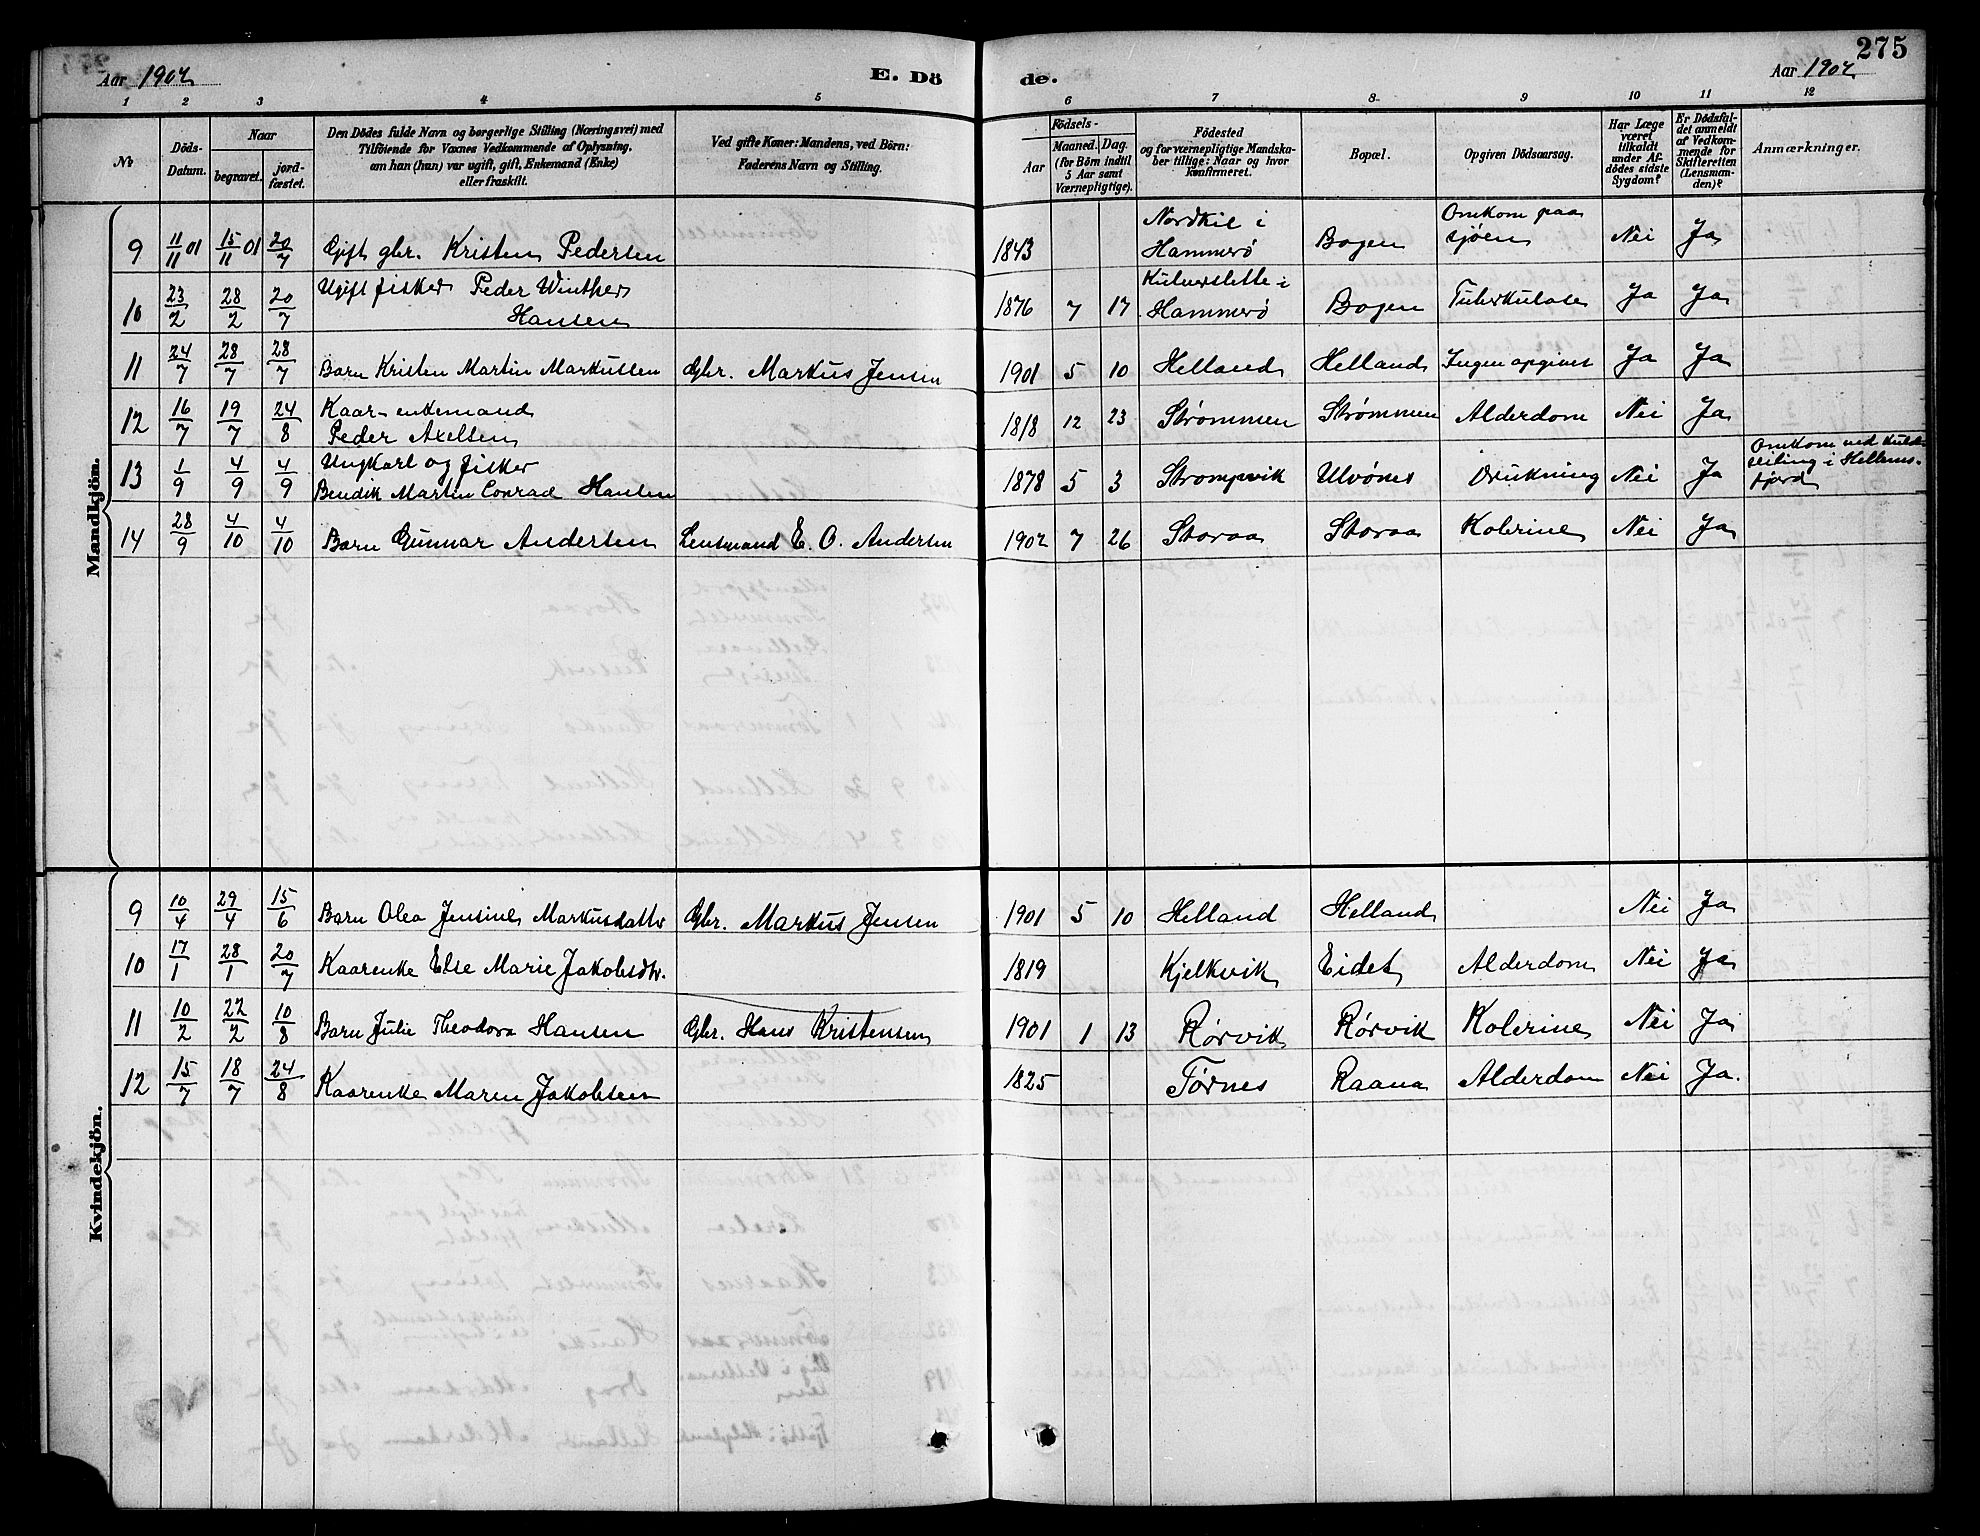 275
Aar 1902 E. Dö de. Aar 1902
1 2 3 4 5 6 7 8 9 10 11 12
No
Döds-
Datum.
Naar
begravet.
jord-
fæstet.
Den Dödes fulde Navn og borgerlige Stilling (Næringsvei) med
Tilföiende for Voxnes Vedkommende af Oplysning,
om han (hun) var ugift, gift, Enkemand (Enke)
eller fraskilt.
Ved gifte Koner: Mandens, ved Börn:
Faderens Navn og Stilling.
Födsels-
Aar
Maaned. Dag.
(for Börn indtil
5 Aar samt
Værnepligtige).
Födested
og for værnepligtige Mandska-
ber tillige: Naar og hvor
konfirmeret.
Bopæl.
Opgiven Dödsaarsag.
Har Læge
været
tilkaldt
under Af-
dödes sidste
Sygdom?
Er Dödsfal-
det anmeldt
af Vedkom-
mende for
Skifteretten
(Lensman-
den)?
Anmærkninger.
Mandkjön.
9 11/11 01 15/11 01 20/7 Gift gbr. Kristen Pedersen 1843 Nordkil i Hammerø Bogen Omkom paa sjøen Nei Ja
10 23/2 28/2 20/7 Ugift fisker Peder Winther
Hansen 1876 7 17 Hammerø Bogen Tuberkulose Ja Ja
11 24/7 28/7 28/7 Barn Kristen Martin Markussen Gbr. Markus Jensen 1901 5 10 Helland Helland Ingen opgivet Ja Ja
12 16/7 19/7 24/8 Kaar-enkemand
Peder Axelsen 1818 12 23 Strømmen Strømmen Alderdom Nei Ja
13 1/9 4/9 4/9 Ungkarl og fisker
Bendik Martin Conrad Hansen 1878 5 3 Strompvik Ulvønes Drukning Nei Ja Omkom ved kuld-
seiling i Hellems-
fjord
14 28/9 4/10 4/10 Barn Gunnar Andersen Lensmand E. O. Andersen 1902 7 26 Storaa Storaa Kolerine Nei Ja
Kvindekjön.
9 10/4 29/4 15/6 Barn Olea Jensine Markusdatter Gbr. Markus Jensen 1901 5 10 Helland Helland Nei Ja
10 17/1 28/1 20/7 Kaarenke Else Marie Jakobsdtr. 1819 Kjelkvik Eidet Alderdom Nei Ja
11 10/2 22/2 10/8 Barn Julie Theodora Hansen Gbr. Hans Kristensen 1901 1 13 Rørvik Rørvik Kolerine Nei Ja
12 15/7 18/7 24/8 Kaarenke Maren Jakobsen 1825 Tørnes Raana Alderdom Nei Ja.